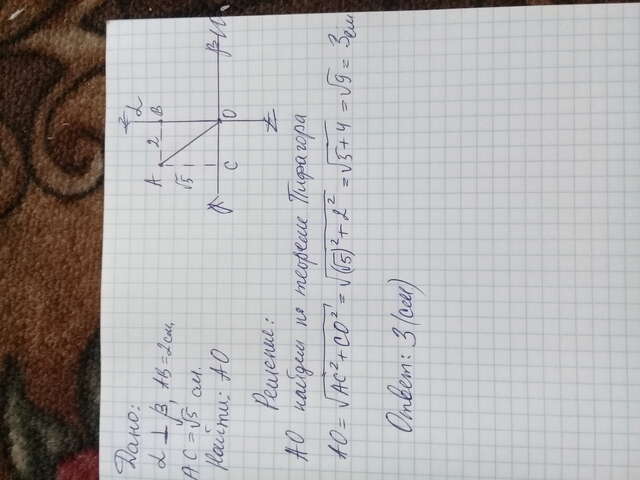 Дано:
α ⊥ β, AB = 2 см,
AC = √5 см.
Найти: AO
α
A 2 B
√5
β
C O
Решение:
AO найдем по теореме Пифагора
AO = √AC² + CO² = √(√5)² + 2² = √5 + 4 = √9 = 3 см
Ответ: 3 (см)